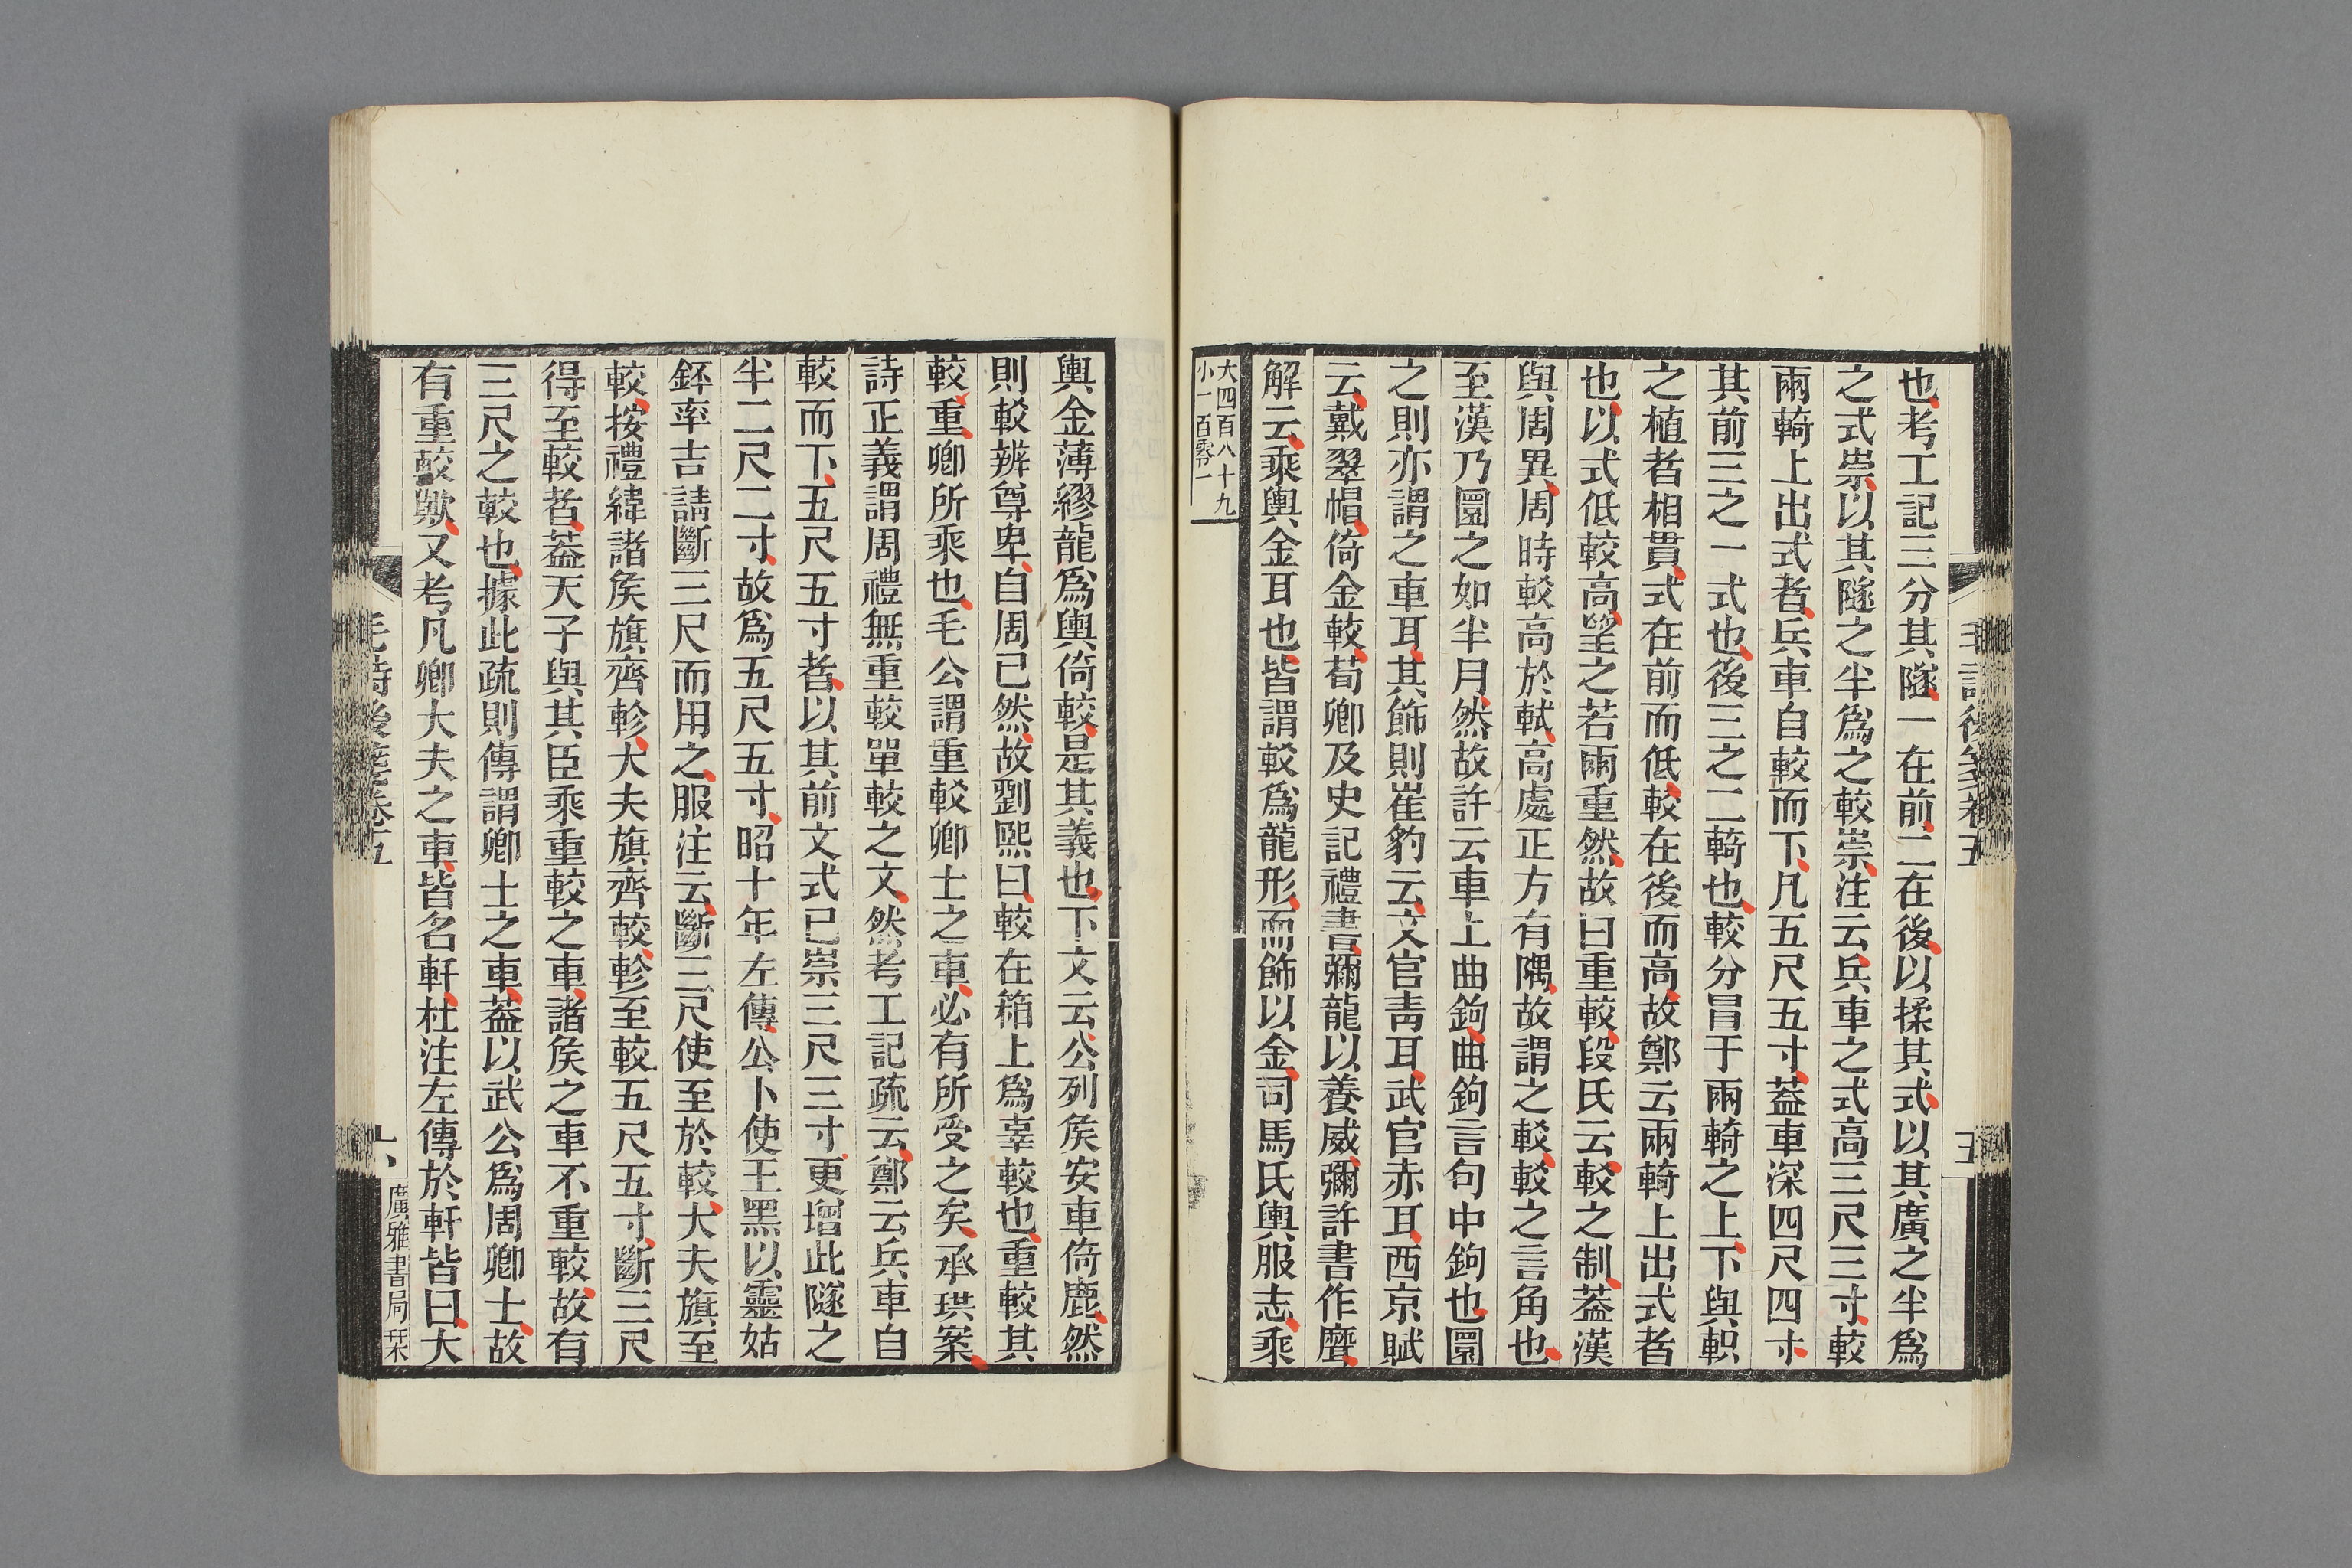 也考工記三分其隧一在前二在後以揉其式以其廣之半爲
之式崇以其隧之半爲之較崇注云兵車之式高三尺三寸較
兩輢上出式者兵車自較而下凡五尺五寸葢車深四尺四寸
其前三之一式也後三之二輢也較分冒于兩輢之上下與軹
之植者相貫式在前而低較在後而高故鄭云兩輢上出式者
也以式低較高望之若兩重然故曰重較段氏云較之制葢漢
與周異周時較高於軾高處正方有隅故謂之較較之言角也
至漢乃圜之如半月然故許云車上曲鉤曲鉤言句中鉤也圜
之則亦謂之車耳其飾則崔豹云文官靑耳武官赤耳西京賦
云戴翠帽倚金較荀卿及史記禮書彌龍以養威彌許書作𪎮
解云乘輿金耳也皆謂較爲龍形而飾以金司馬氏輿服志乘
大四百八十九
小一百零一
毛詩後箋卷五
五
輿金薄繆龍爲輿倚較是其義也下文云公列矦安車倚鹿然
則較辨尊卑自周已然故劉熙曰較在箱上爲辜較也重較其
較重卿所乘也毛公謂重較卿士之車必有所受之矣承珙案
詩正義謂周禮無重較單較之文然考工記疏云鄭云兵車自
較而下五尺五寸者以其前文式已崇三尺三寸更增此隧之
半二尺二寸故爲五尺五寸昭十年左傳公卜使王黑以靈姑
銔率吉請斷三尺而用之服注云斷三尺使至於較大夫旗至
較按禮緯諸矦旗齊軫大夫旗齊較軫至較五尺五寸斷三尺
得至較者葢天子與其臣乘重較之車諸矦之車不重較故有
三尺之較也據此疏則傳謂卿士之車葢以武公爲周卿士故
有重較歟又考凡卿大夫之車皆名軒杜注左傳於軒皆曰大
毛詩後箋卷五
六
廣雅書局栞